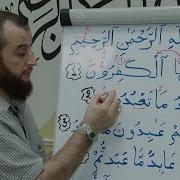 ٱلرَّحْمَٰنِ ٱلرَّحِيمِ
ٱلْكَٰفِرُونَ ﴿١﴾
مَا تَعْبُدُونَ ﴿٢﴾
عَٰبِدُونَ مَا
عَابِدٌ مَّا عَبَدتُّمْ